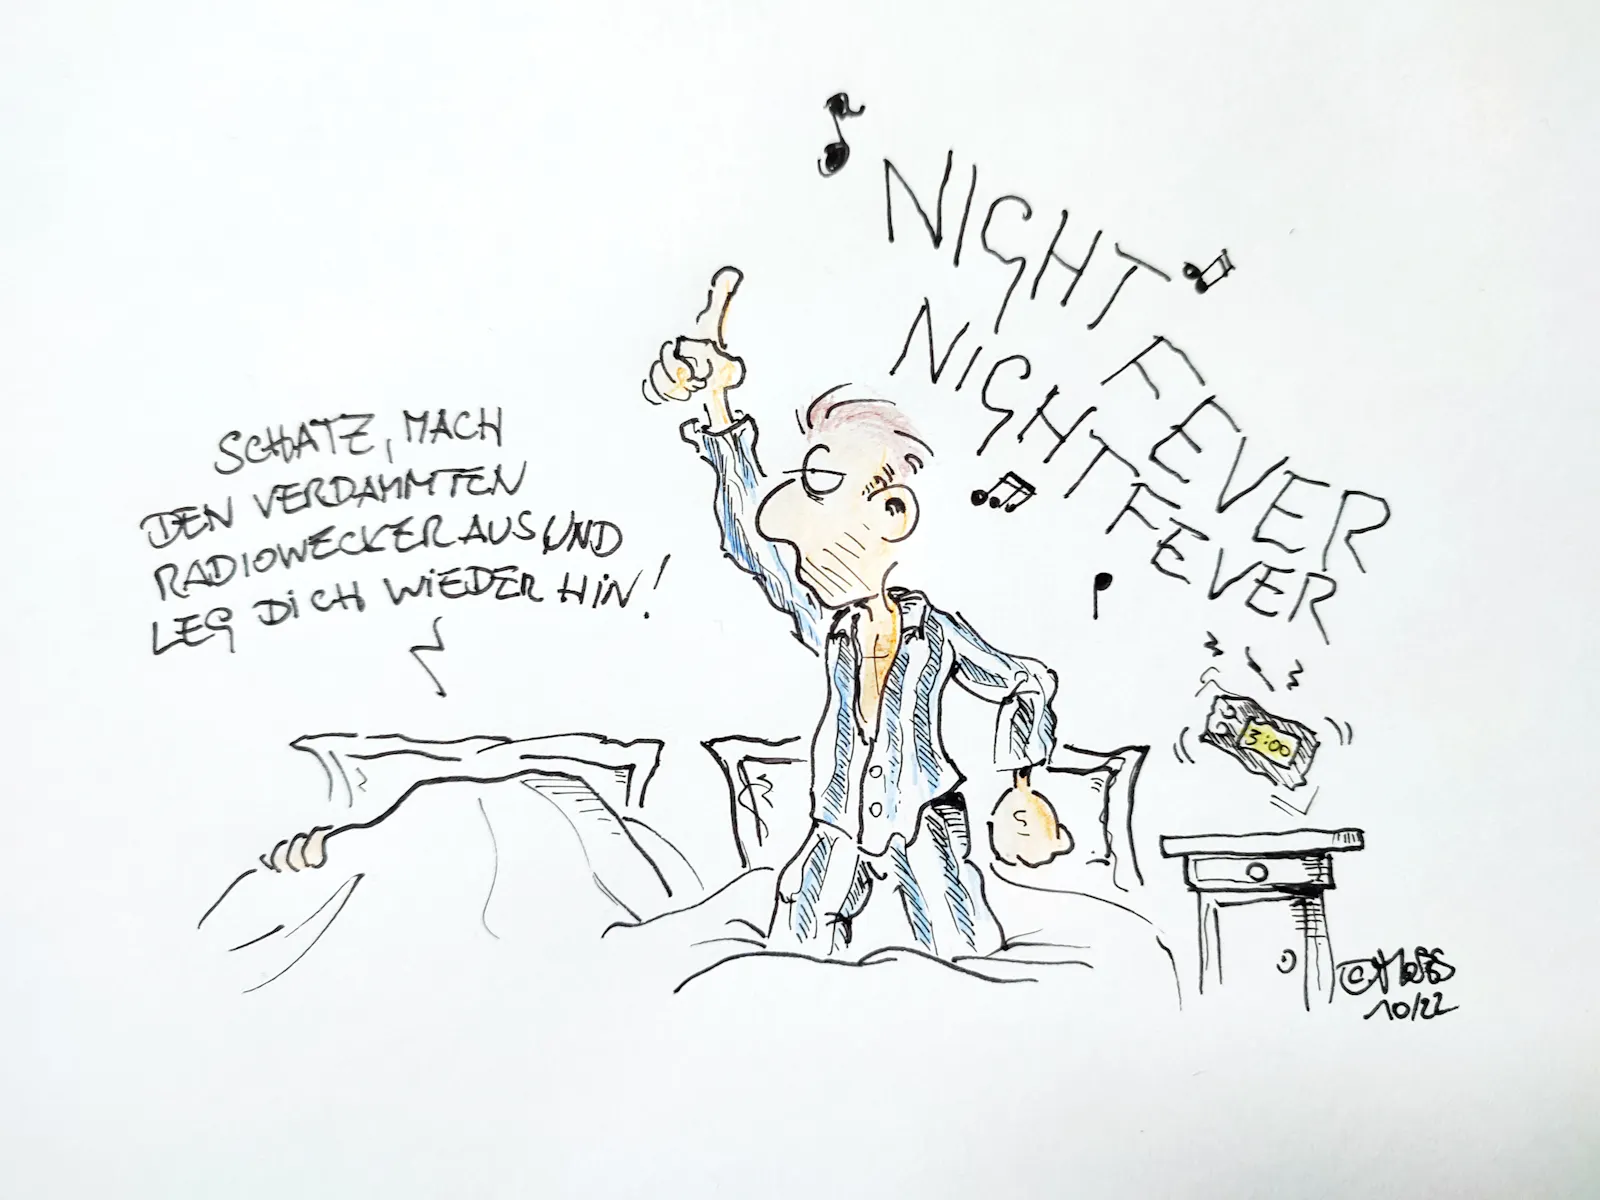 SCHATZ, MACH
DEN VERDAMMTEN
RADIOWECKER AUS UND
LEG DICH WIEDER HIN!
NIGHT FEVER
NIGHT FEVER
3:00
©
10/22